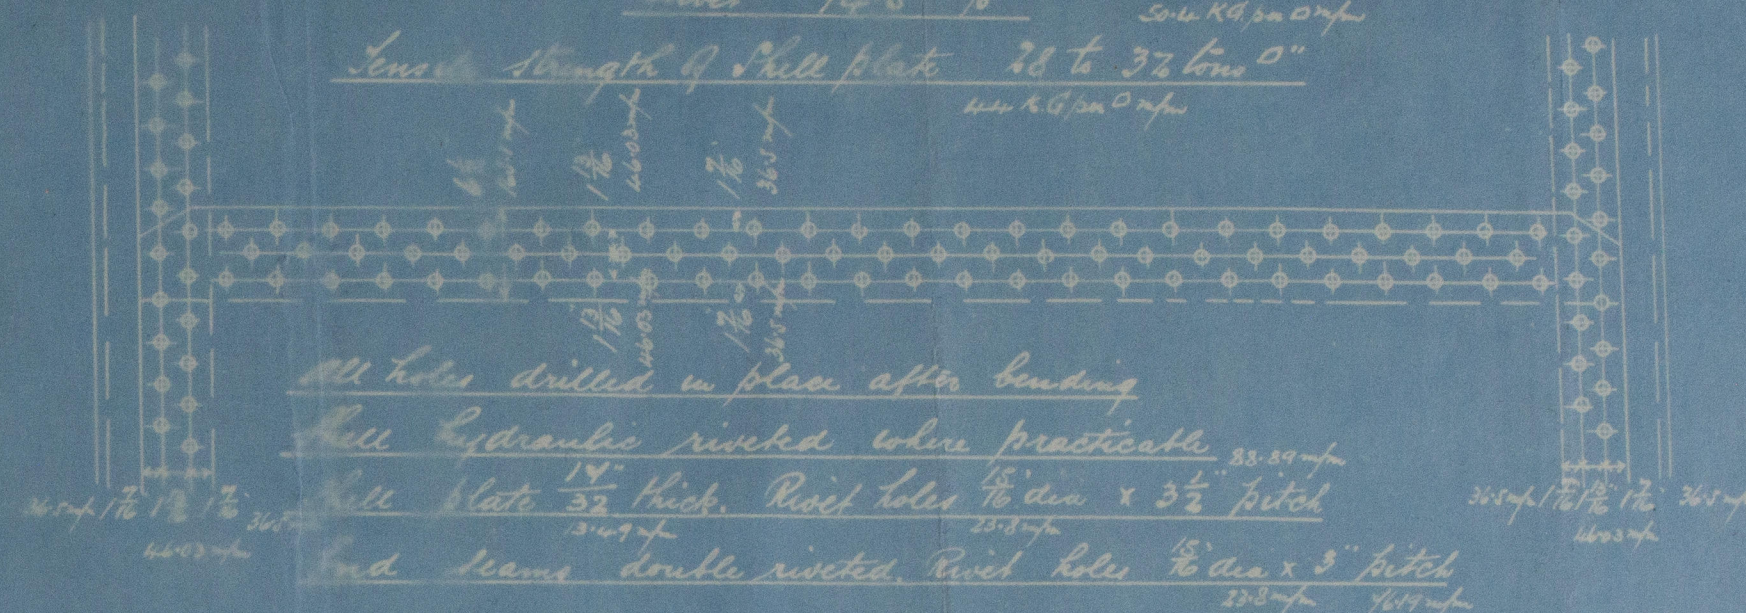 50.4 KG. per □ m/m
Tensile strength of Shell plate 28 to 32 tons □"
44 K.G. per □ m/m
1 13/16 46.03 m/m 1 7/16 36.5 m/m
1 13/16" 46.03 m/m 1 7/16" 36.5 m/m
All holes drilled in place after bending
Shell hydraulic riveted where practicable
88.89 m/m
Shell plate 17/32" thick. Rivet holes 15/16" dia x 3 1/2" pitch
13.49 m/m 23.8 m/m
36.5 m/m 1 7/16 1 7/16 36.5
46.03 m/m
36.5 m/m 1 7/16 1 13/16 1 7/16" 36.5 m/m
46.03 m/m
End seams double riveted. Rivet holes 15/16" dia x 3" pitch
23.8 m/m 76.19 m/m